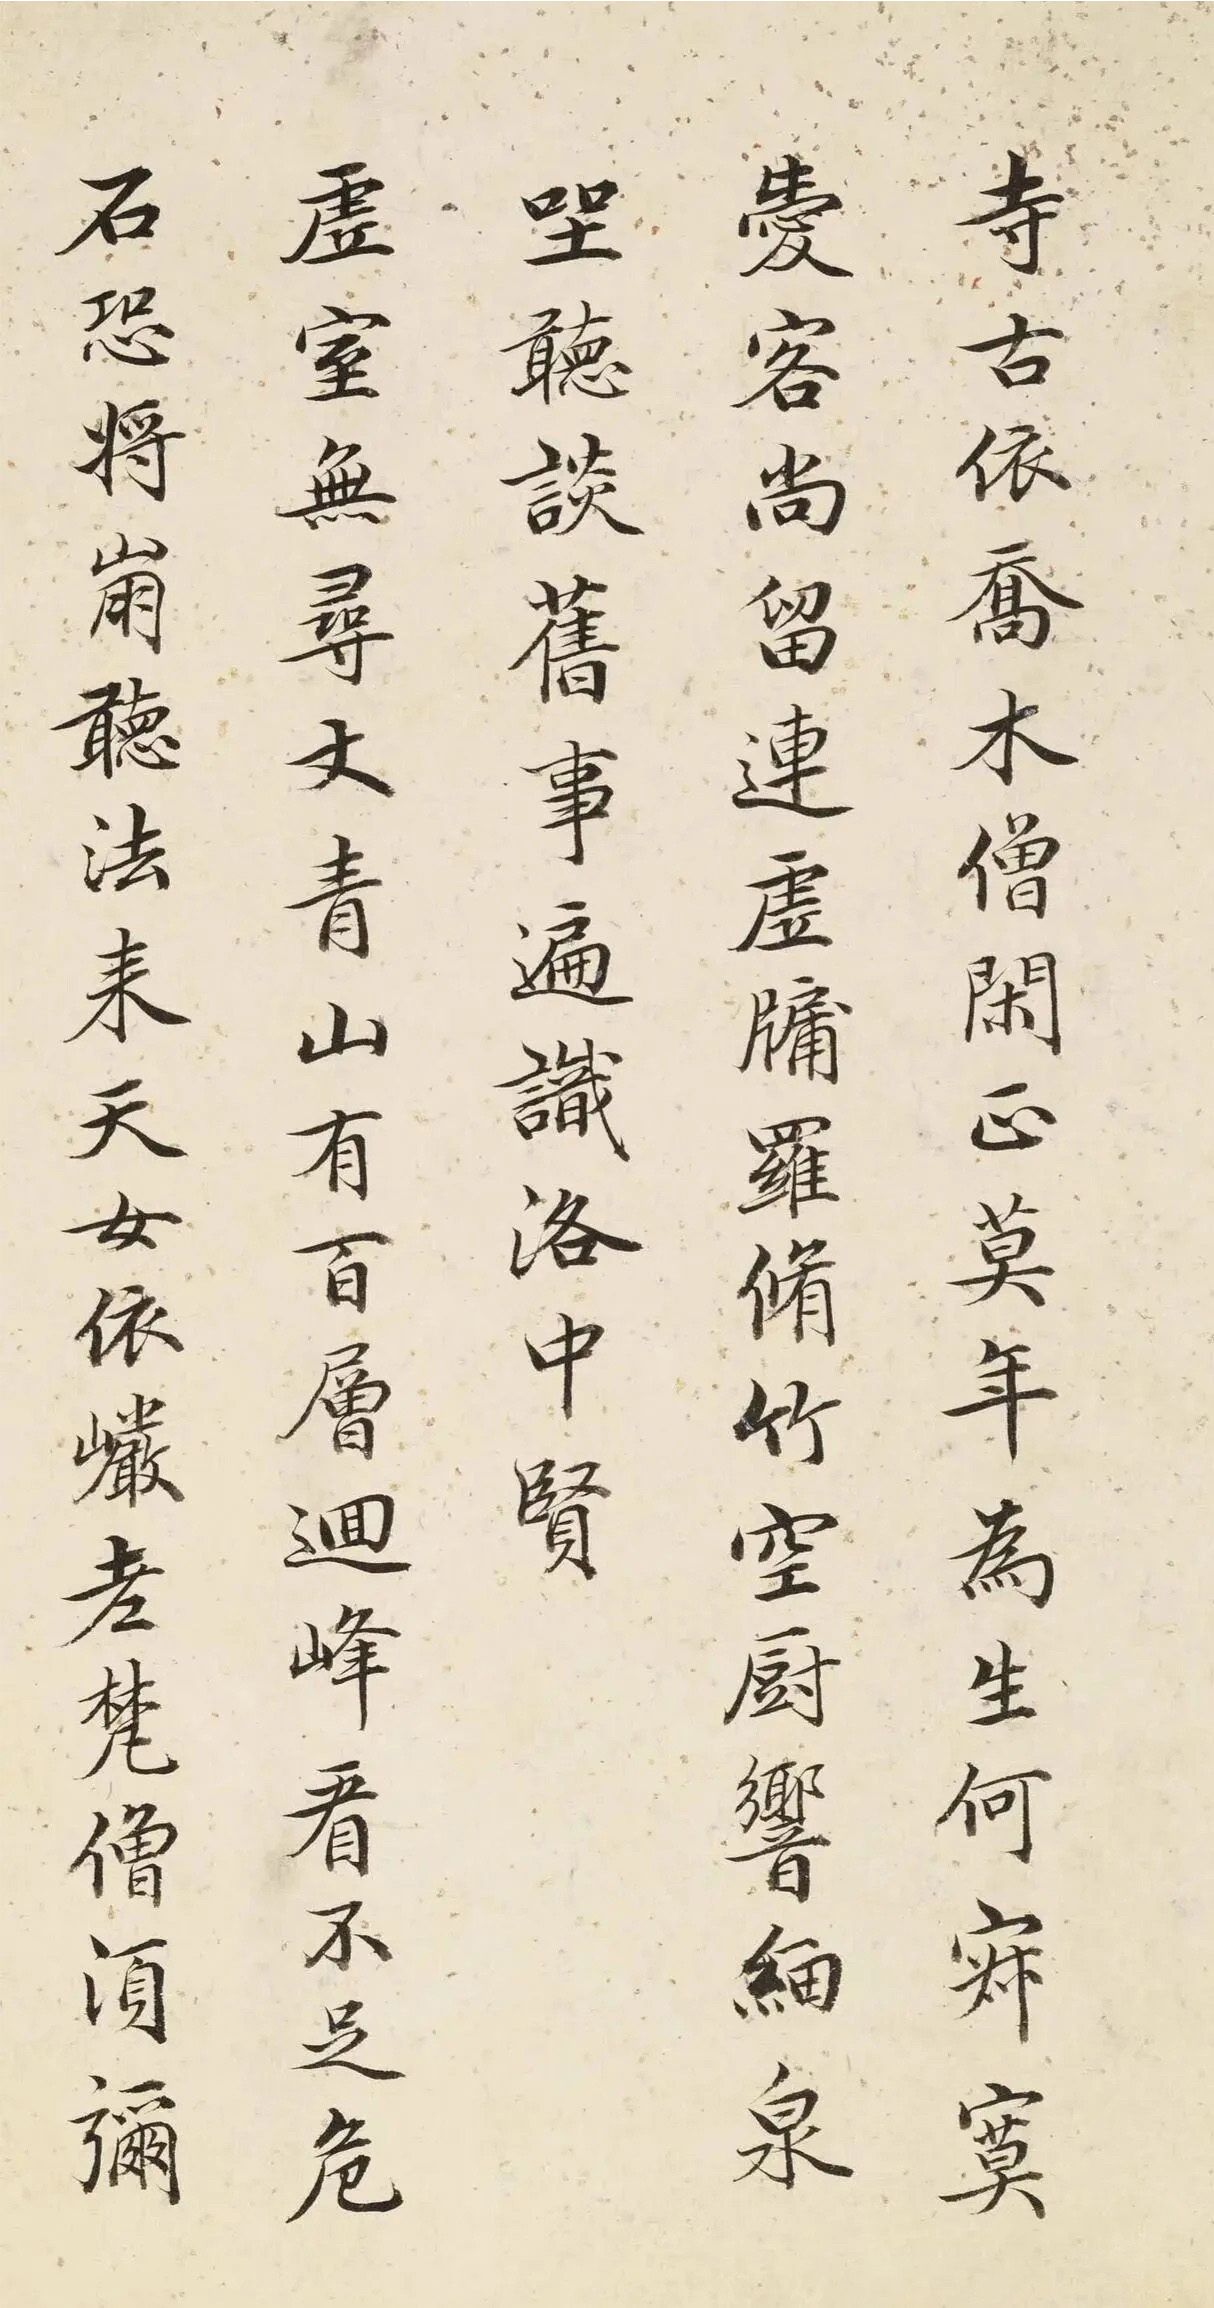 寺古依喬木僧閑正莫年為生何寂寞
愛客尚留連虛牖羅脩竹空厨響細泉
坐聽談舊事遍識洛中賢
虛室無尋丈青山有百層迴峰看不足危
石恐將崩聽法来天女依巖老梵僧須彌